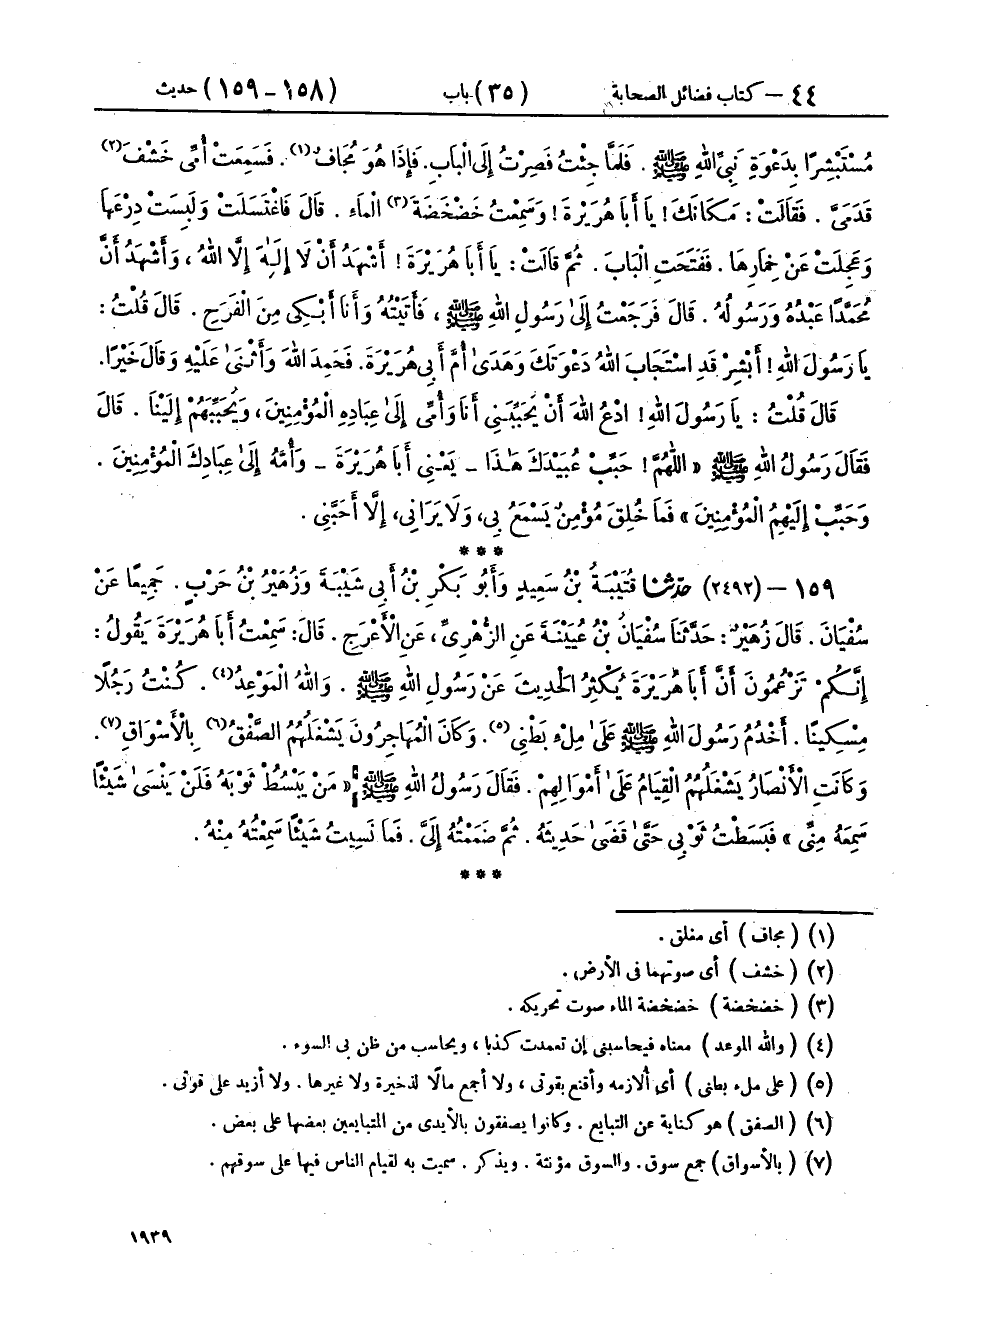 ٤٤ – كتاب فضائل الصحابة (٣٥) باب (١٥٨ – ١٥٩) حديث
مُسْتَبْشِرًا بِدَعْوَةِ نَبِيِّ اللهِ ﷺ . فَلَمَّا جِئْتُ فَصِرْتُ إِلَى الْبَابِ. فَإِذَا هُوَ مُجَافٌ(١). فَسَمِعَتْ أُمِّي خَشْفَ(٢)
قَدَمَيَّ . فَقَالَتْ : مَكَانَكَ ! يَا أَبَا هُرَيْرَةَ ! وَسَمِعْتُ خَضْخَضَةَ(٣) الْمَاءِ . قَالَ فَاغْتَسَلَتْ وَلَبِسَتْ دِرْعَهَا
وَعَجِلَتْ عَنْ خِمَارِهَا . فَفَتَحَتِ الْبَابَ . ثُمَّ قَالَتْ : يَا أَبَا هُرَيْرَةَ ! أَشْهَدُ أَنْ لَا إِلَٰهَ إِلَّا اللهُ ، وَأَشْهَدُ أَنَّ
مُحَمَّدًا عَبْدُهُ وَرَسُولُهُ . قَالَ فَرَجَعْتُ إِلَىٰ رَسُولِ اللهِ ﷺ ، فَأَتَيْتُهُ وَأَنَا أَبْكِي مِنَ الْفَرَحِ . قَالَ قُلْتُ :
يَا رَسُولَ اللهِ ! أَبْشِرْ قَدِ اسْتَجَابَ اللهُ دَعْوَتَكَ وَهَدَىٰ أُمَّ أَبِي هُرَيْرَةَ. فَحَمِدَ اللهَ وَأَثْنَىٰ عَلَيْهِ وَقَالَ خَيْرًا.
قَالَ قُلْتُ : يَا رَسُولَ اللهِ ! ادْعُ اللهَ أَنْ يُحَبِّبَنِي أَنَا وَأُمِّي إِلَىٰ عِبَادِهِ الْمُؤْمِنِينَ ، وَيُحَبِّبَهُمْ إِلَيْنَا . قَالَ
فَقَالَ رَسُولُ اللهِ ﷺ « اللَّهُمَّ ! حَبِّبْ عُبَيْدَكَ هَٰذَا – يَعْنِي أَبَا هُرَيْرَةَ – وَأُمَّهُ إِلَىٰ عِبَادِكَ الْمُؤْمِنِينَ .
وَحَبِّبْ إِلَيْهِمُ الْمُؤْمِنِينَ » فَمَا خُلِقَ مُؤْمِنٌ يَسْمَعُ بِي، وَلَا يَرَانِي، إِلَّا أَحَبَّنِي .
* * *
١٥٩ – (٢٤٩٢) حَدَّثَنَا قُتَيْبَةُ بْنُ سَعِيدٍ وَأَبُو بَكْرِ بْنُ أَبِي شَيْبَةَ وَزُهَيْرُ بْنُ حَرْبٍ . جَمِيعًا عَنْ
سُفْيَانَ . قَالَ زُهَيْرٌ : حَدَّثَنَا سُفْيَانُ بْنُ عُيَيْنَةَ عَنِ الزُّهْرِيِّ ، عَنِ الْأَعْرَجِ . قَالَ: سَمِعْتُ أَبَا هُرَيْرَةَ يَقُولُ :
إِنَّكُمْ تَزْعُمُونَ أَنَّ أَبَا هُرَيْرَةَ يُكْثِرُ الْحَدِيثَ عَنْ رَسُولِ اللهِ ﷺ . وَاللهُ الْمَوْعِدُ(٤) . كُنْتُ رَجُلًا
مِسْكِينًا . أَخْدُمُ رَسُولَ اللهِ ﷺ عَلَىٰ مِلْءِ بَطْنِي(٥). وَكَانَ الْمُهَاجِرُونَ يَشْغَلُهُمُ الصَّفْقُ(٦) بِالْأَسْوَاقِ(٧).
وَكَانَتِ الْأَنْصَارُ يَشْغَلُهُمُ الْقِيَامُ عَلَىٰ أَمْوَالِهِمْ. فَقَالَ رَسُولُ اللهِ ﷺ « مَنْ يَبْسُطْ ثَوْبَهُ فَلَنْ يَنْسَىٰ شَيْئًا
سَمِعَهُ مِنِّي » فَبَسَطْتُ ثَوْبِي حَتَّىٰ قَضَىٰ حَدِيثَهُ . ثُمَّ ضَمَمْتُهُ إِلَيَّ . فَمَا نَسِيتُ شَيْئًا سَمِعْتُهُ مِنْهُ .
* * *
(١) ( مجاف ) أى مغلق .
(٢) ( خشف ) أى صوتهما فى الأرض .
(٣) ( خضخضة ) خضخضة الماء صوت تحريكه .
(٤) ( والله الموعد ) معناه فيحاسبنى إن تعمدت كذبا ، ويحاسب من ظن بى السوء .
(٥) ( على ملء بطنى ) أى ألازمه وأقنع بقوتى ، ولا أجمع مالًا لذخيرة ولا غيرها . ولا أزيد على قوتى .
(٦) ( الصفق ) هو كناية عن التبايع . وكانوا يصفقون بالأيدى من المتبايعين بعضها على بعض .
(٧) ( بالأسواق ) جمع سوق. والسوق مؤنثة . ويذكر . سميت به لقيام الناس فيها على سوقهم .
١٩٣٩